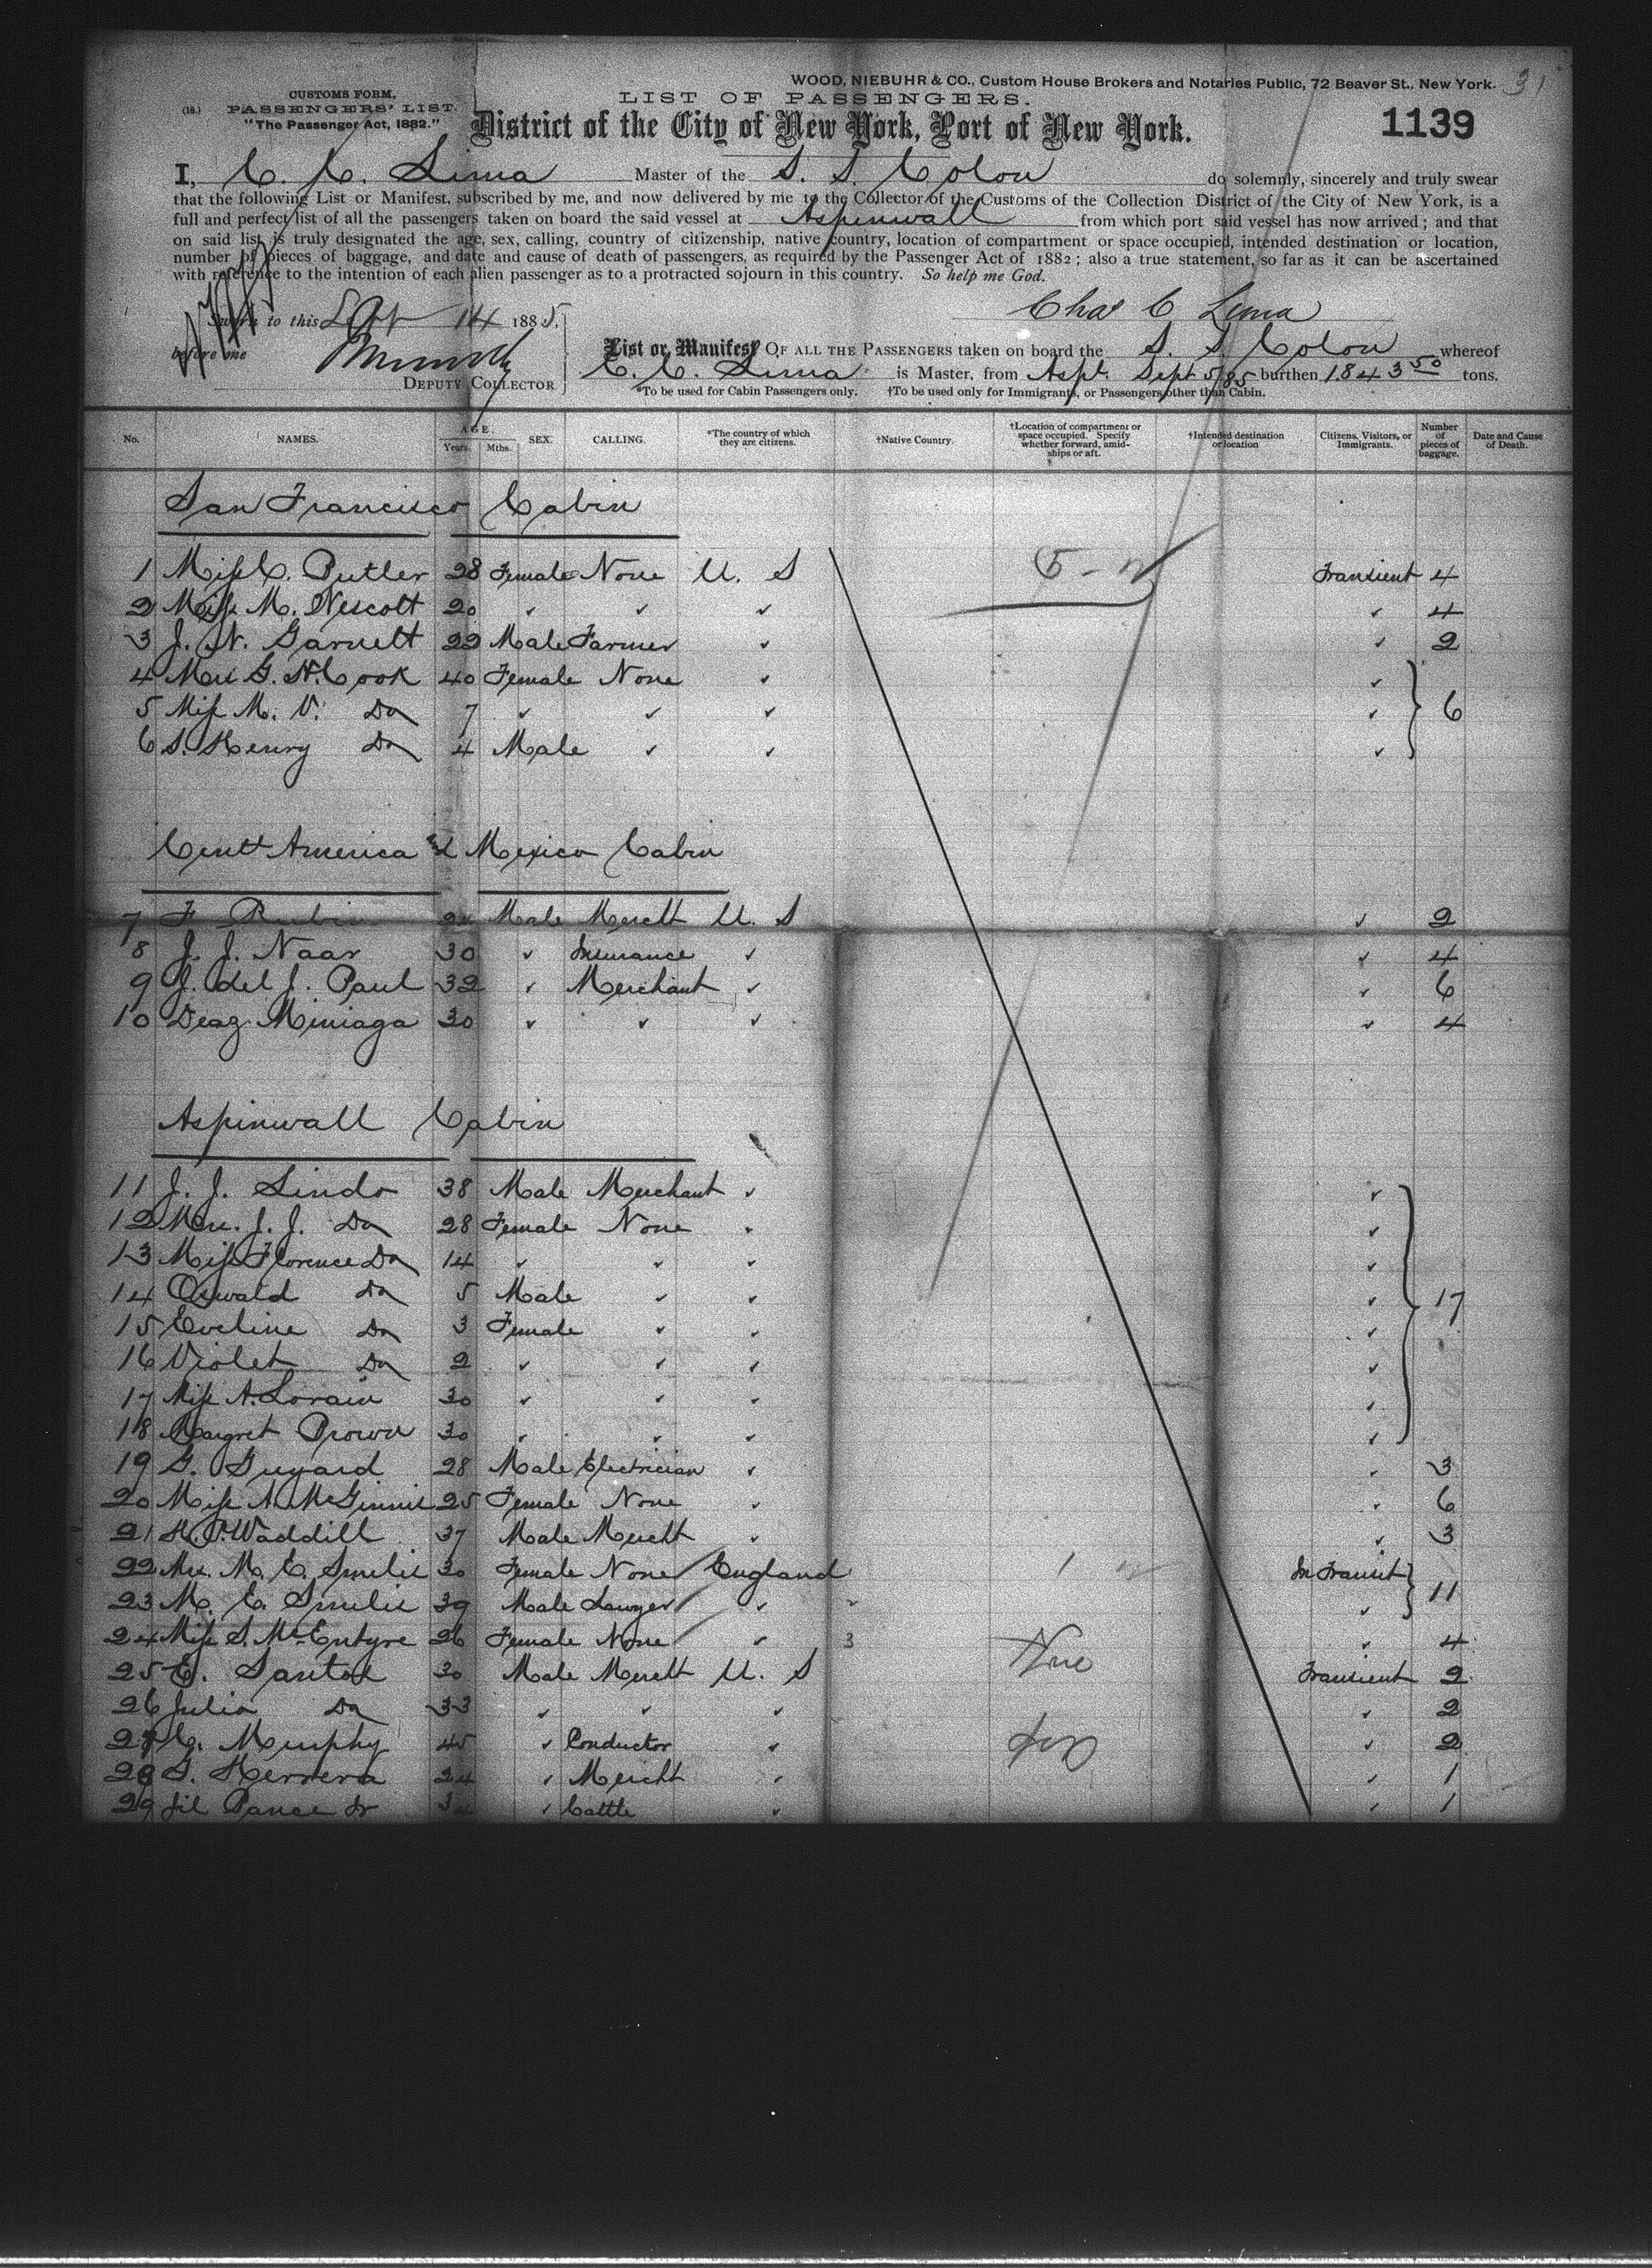 WOOD, NIEBUHR & CO., Custom House Brokers and Notaries Public, 72 Beaver St., New York. 31
CUSTOMS FORM,
(18.) PASSENGERS' LIST.
"The Passenger Act, 1882."
LIST OF PASSENGERS.
District of the City of New York, Port of New York.
1139
I, C. C. Lima Master of the S. S. Colon do solemnly, sincerely and truly swear
that the following List or Manifest, subscribed by me, and now delivered by me to the Collector of the Customs of the Collection District of the City of New York, is a
full and perfect list of all the passengers taken on board the said vessel at Aspinwall from which port said vessel has now arrived; and that
on said list is truly designated the age, sex, calling, country of citizenship, native country, location of compartment or space occupied, intended destination or location,
number of pieces of baggage, and date and cause of death of passengers, as required by the Passenger Act of 1882; also a true statement, so far as it can be ascertained
with reference to the intention of each alien passenger as to a protracted sojourn in this country. So help me God.
Chas C Lima
Sworn to this Sept 14 1885,
before me
DEPUTY COLLECTOR
List or Manifest OF ALL THE PASSENGERS taken on board the S. S. Colon whereof
C. C. Lima is Master, from Aspl. Sept 5/85 burthen 1843 50 tons.
*To be used for Cabin Passengers only. †To be used only for Immigrants, or Passengers other than Cabin.
No. NAMES. AGE. Years. Mths. SEX. CALLING. *The country of which they are citizens. †Native Country. †Location of compartment or space occupied. Specify whether forward, amidships or aft. †Intended destination or location Citizens, Visitors, or Immigrants. Number of pieces of baggage. Date and Cause of Death.
San Francisco Cabin
1 Miss C. Butler 28 Female None U. S Transient 4
2 Miss M. Wescott 20 ✓ ✓ ✓ ✓ 4
3 J. N. Garnett 22 Male Farmer ✓ ✓ 2
4 Mrs G. N. Cook 40 Female None ✓ ✓
5 Miss M. V. Do 7 ✓ ✓ ✓ ✓ 6
6 S. Henry Do 4 Male ✓ ✓ ✓
Centl America and Mexico Cabin
7 F Rubin Male Mercht U. S ✓ 2
8 J. J. Naar 30 ✓ Insurance ✓ ✓ 4
9 J. del J. Paul 32 ✓ Merchant ✓ ✓ 6
10 Deaz Miniaga 30 ✓ ✓ ✓ ✓ 4
Aspinwall Cabin
11 J. J. Lindo 38 Male Merchant ✓ ✓
12 Mrs. J. J. Do 28 Female None ✓ ✓
13 Miss Florence Do 14 ✓ ✓ ✓ ✓
14 Oswald Do 5 Male ✓ ✓ ✓ 17
15 Eveline Do 3 Female ✓ ✓ ✓
16 Violet Do 2 ✓ ✓ ✓ ✓
17 Miss A. Lorain 30 ✓ ✓ ✓ ✓
18 Margret Brown 30 ✓ ✓ ✓ ✓
19 G. Guyard 28 Male Electrician ✓ ✓ 3
20 Miss A. McGinnis 25 Female None ✓ ✓ 6
21 H. P. Waddill 37 Male Mercht ✓ ✓ 3
22 Mrs. M. E. Smilie 30 Female None England 1 In Transit
23 M. E. Smilie 39 Male Lawyer ✓ ✓ 11
24 Miss S. McEntyre 26 Female None ✓ 3 ✓ 4
25 E. Santos 30 Male Mercht U. S Transient 2
26 Julio Do 33 ✓ ✓ ✓ ✓ 2
27 C. Murphy 45 ✓ Conductor ✓ ✓ 2
28 G. Herrera 24 ✓ Mercht ✓ ✓ 1
29 Gil Ponce Jr ✓ Cattle ✓ ✓ 1